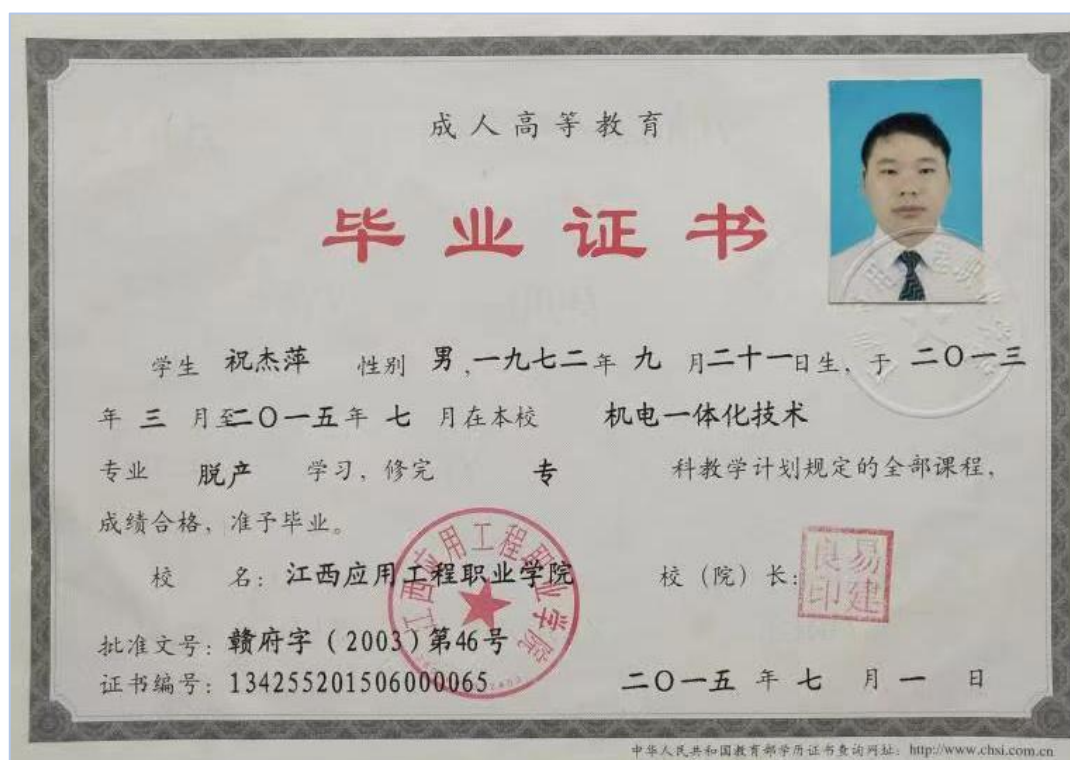 成人高等教育
毕业证书
学生 祝杰萍 性别 男,一九七二年 九 月二十一日生, 于 二〇一三
年 三 月至二〇一五年 七 月在本校 机电一体化技术
专业 脱产 学习, 修完 专 科教学计划规定的全部课程,
成绩合格, 准予毕业。
校 名: 江西应用工程职业学院 校 (院) 长:
易建良印
江西应用工程职业学院
批准文号: 赣府字 (2003) 第46号
证书编号: 134255201506000065 二〇一五 年 七 月 一 日
中华人民共和国教育部学历证书查询网址: http://www.chsi.com.cn